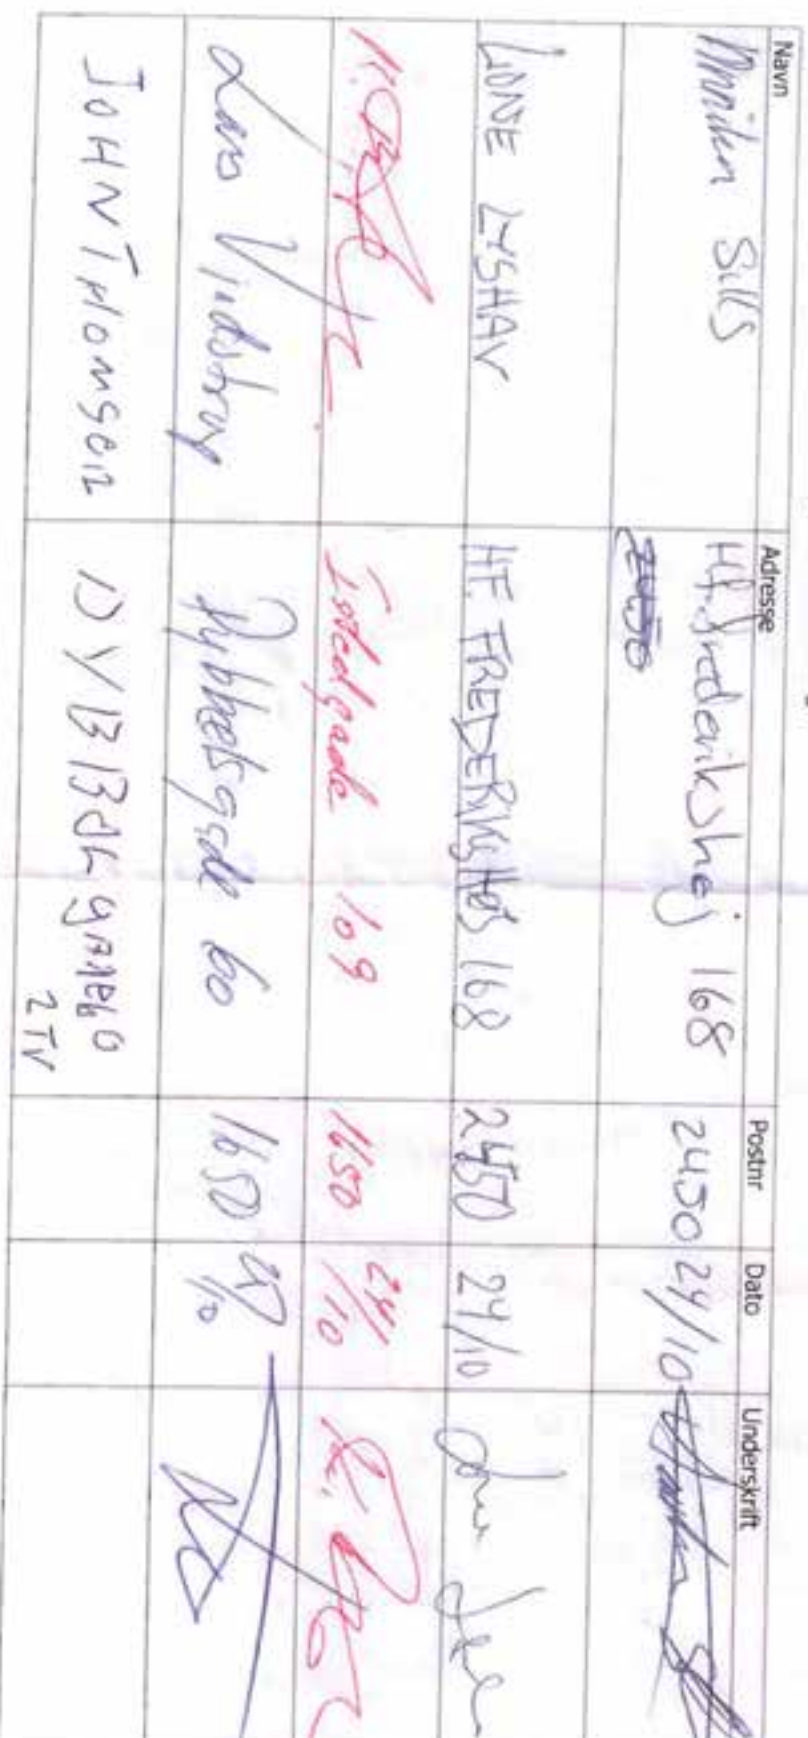 Navn Adresse Postnr Dato Underskrift
Sills Hf. Frederikshøj 168 2450 24/10
2450
LONE LYSHAV HF. FREDERIKSHØJ 168 2450 24/10
Istedgade 109 1650 24/10
Lars Vindstrup Dybbølsgade 60 1650 /10
JOHN THOMSEN DYBBØLGADE60
2 TV